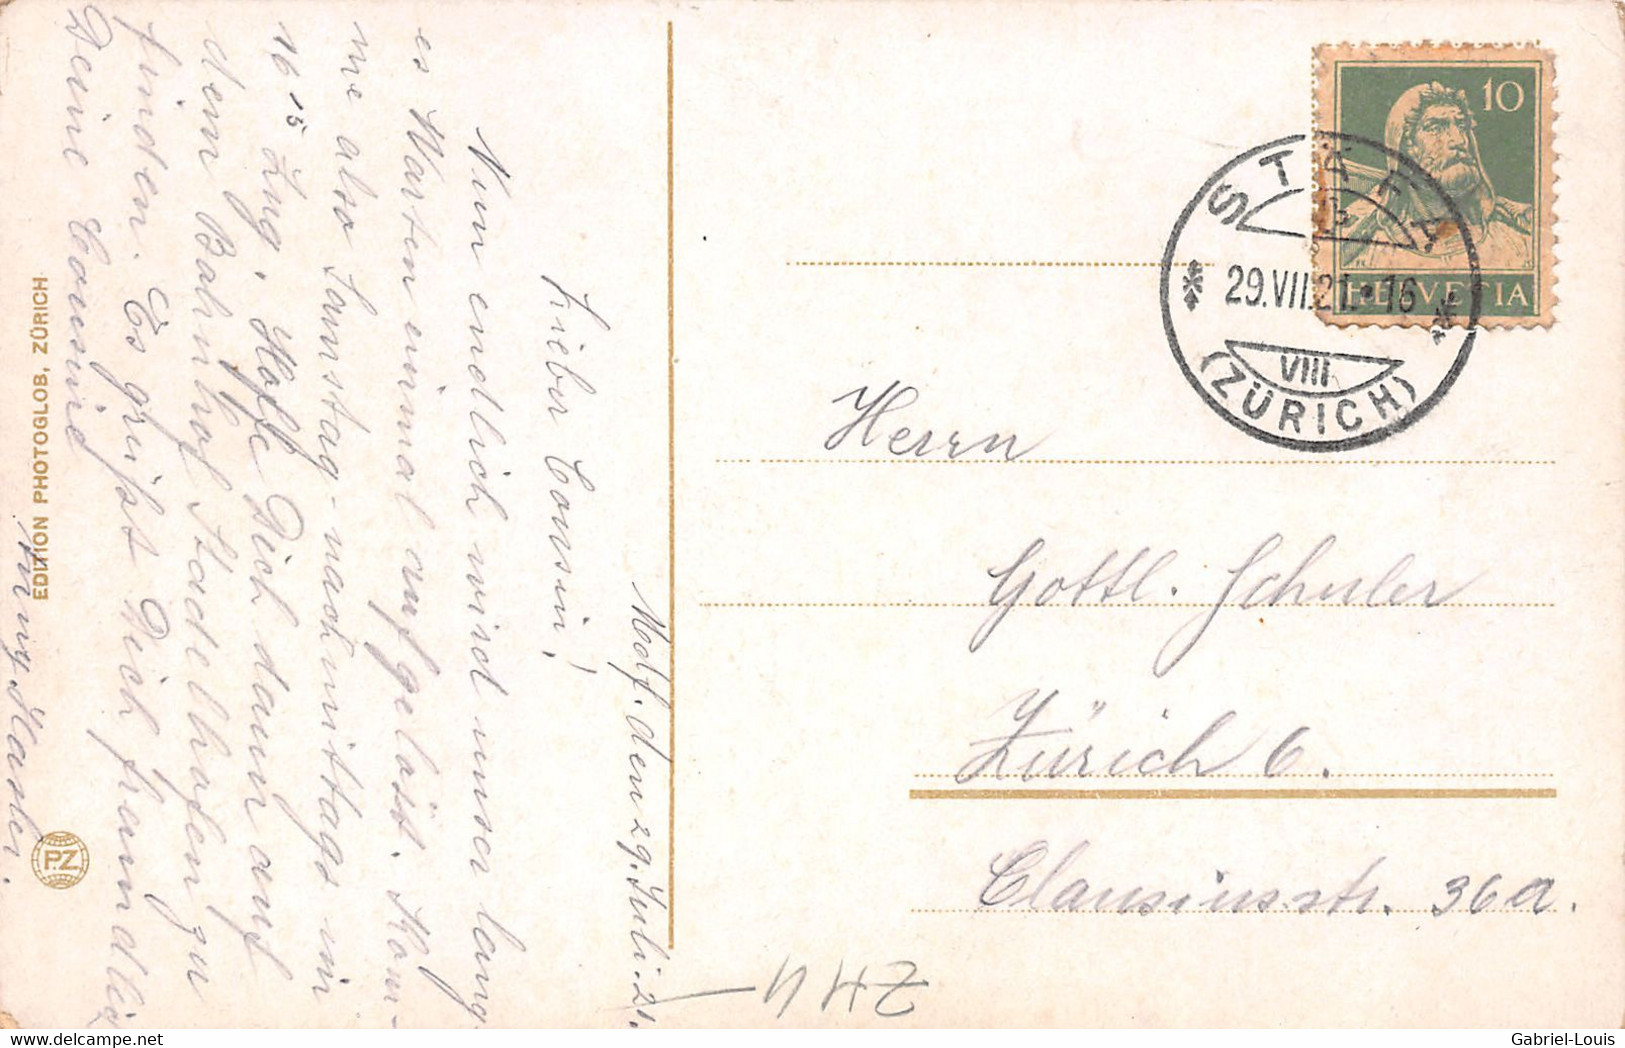 Mdf. den 29. Juli. 21.
Lieber Cousin!
Nun endlich wird unser lang-
es Warten einmal aufgelöst. Kom-
me also Samstag-nachmittags mit
16 15 Zug. Hoffe Dich dann auf
dem Bahnhof Stadelhofen zu
finden. Es grüßt Dich freundlich
Deine Cousine
Hasler.
EDITION PHOTOGLOB, ZÜRICH
P.Z.
10
HELVETIA
STÄFA
29.VII.21.-16
VIII
(ZÜRICH)
Herrn
Gottl. Schuler
Zürich 6.
Clausiusstr. 36a.
Gabriel-Louis